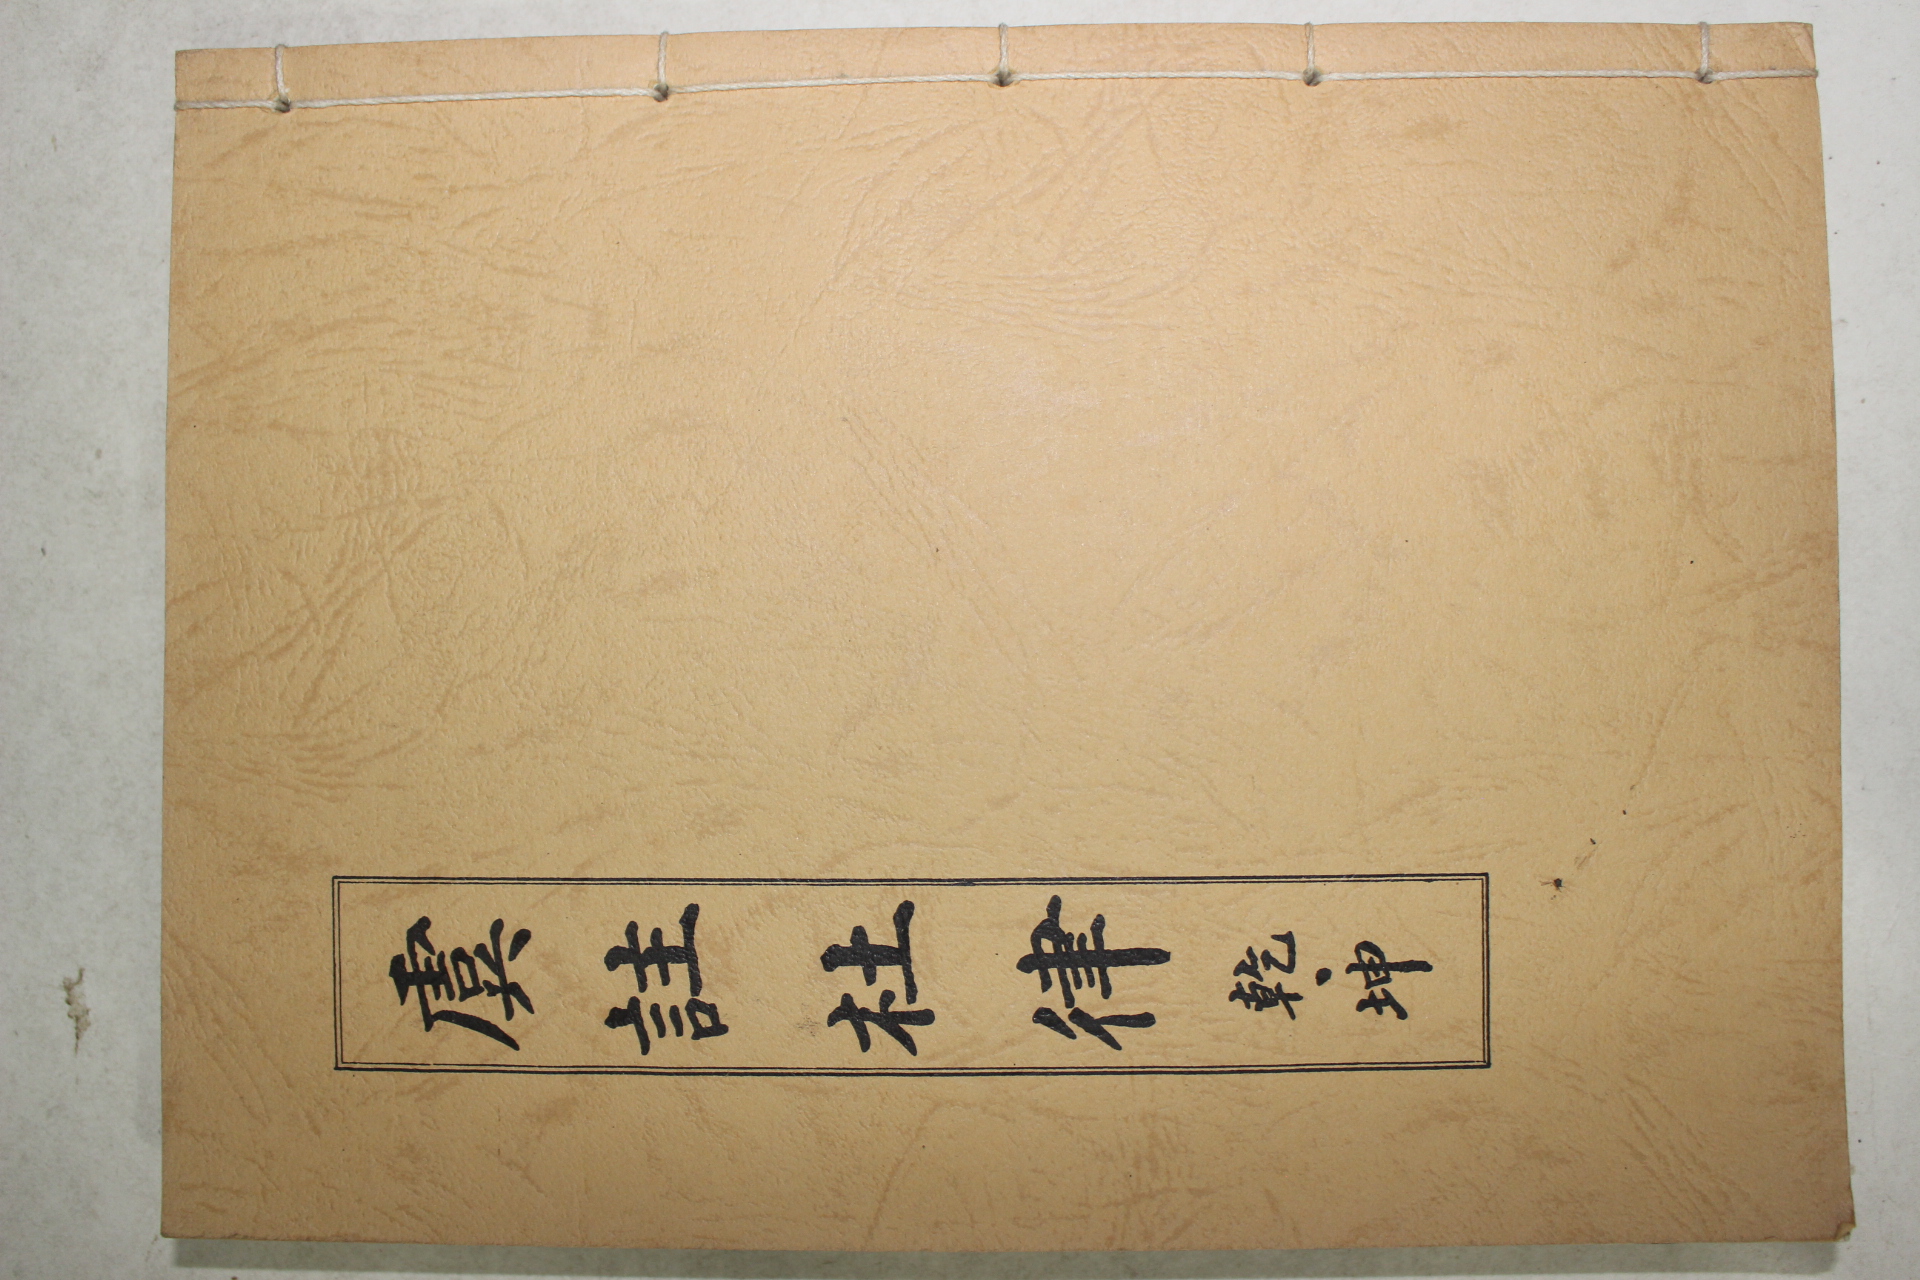 虞註杜律 乾·坤